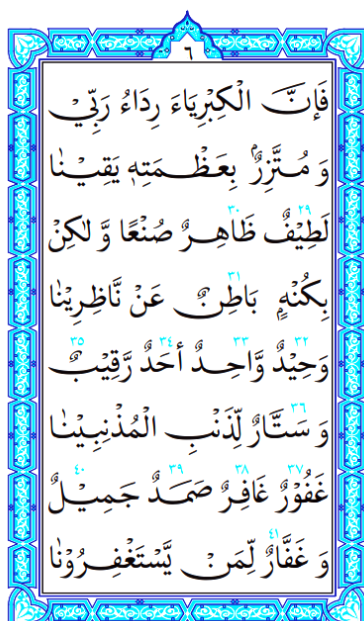 ٦
فَإِنَّ الْكِبْرِيَاءَ رِدَاءُ رَبِّيْ
وَ مُتَّزِرٌۢ بِعَظْمَتِهٖ يَقِيْنٰا
لَطِيْفٌ ٢٩ ظَاهِرٌ ٣٠ صُنْعًا وَّ لٰكِنْ
بِكُنْهٍۭ بَاطِنٌ ٣١ عَنْ نَّاظِرِيْنٰا
وَحِيْدٌ ٣٢ وَّاحِدٌ ٣٣ أَحَدٌ ٣٤ رَّقِيْبٌ ٣٥
وَ سَتَّارٌ ٣٦ لِّذَنْبِ الْمُذْنِبِيْنٰا
غَفُوْرٌ ٣٧ غَافِرٌ ٣٨ صَمَدٌ ٣٩ جَمِيْلٌ ٤٠
وَ غَفَّارٌ ٤١ لِّمَنْ يَّسْتَغْفِرُوْنٰا